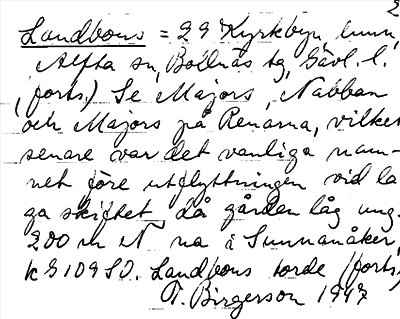 2
Landbous = 29 Kyrkbyn, hmn,
Alfta sn, Bollnäs tg, Gävl. l.
(forts.) Se Majors, Nabban
och Majors på Renarna, vilket
senare var det vanliga nam-
net före utflyttningen vid la
ga skiftet, då gården låg ung.
200 m N na i Sunnanåker,
k 9109 SO. Landbous torde (forts)
T. Birgerson 1947